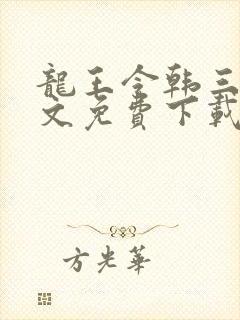 龍王令韩三
文免費下載
方光華